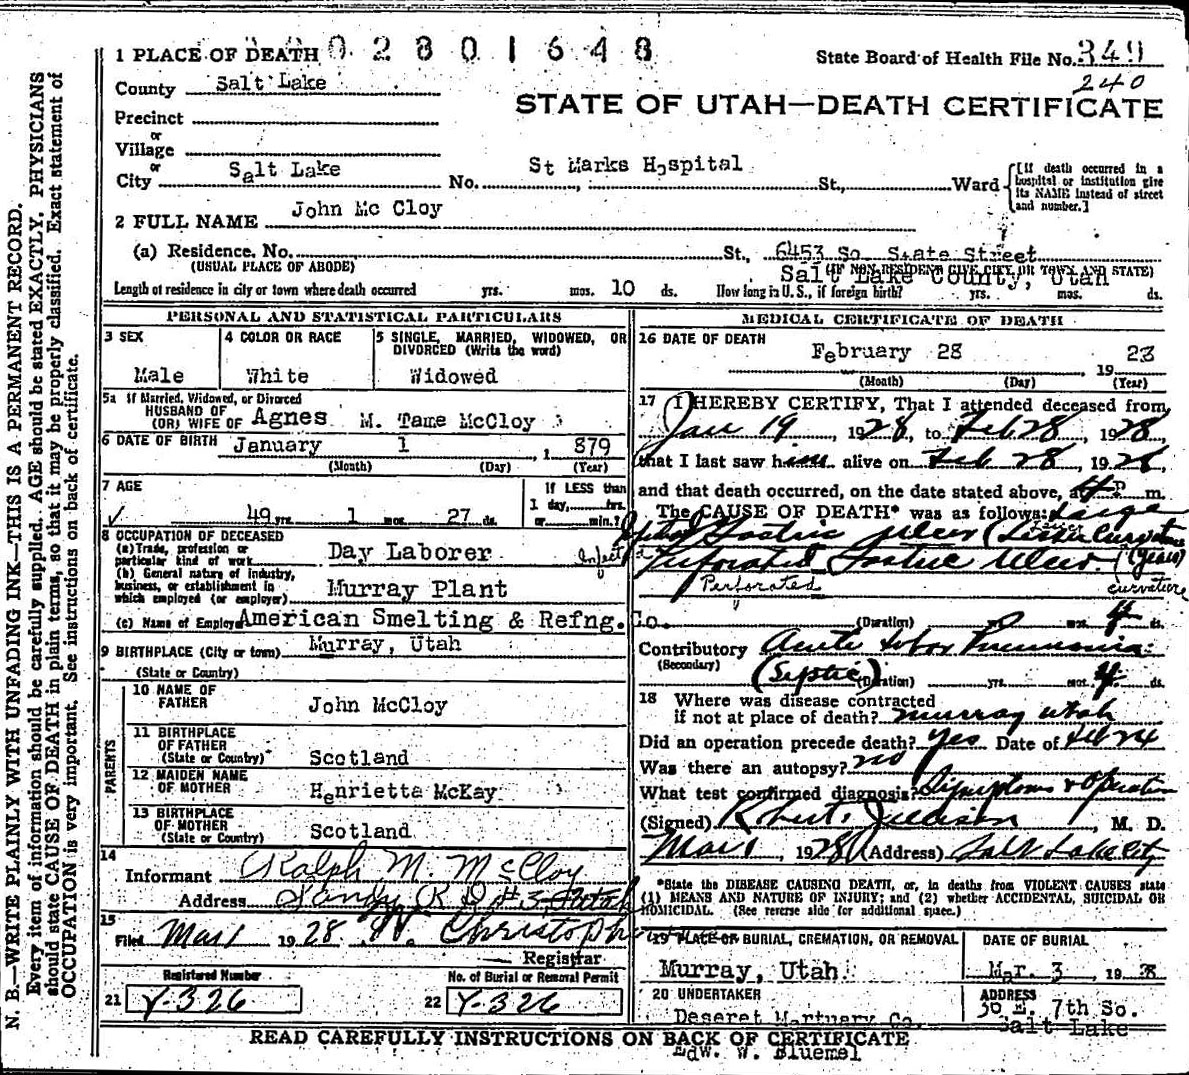 1 PLACE OF DEATH 02801648
State Board of Health File No. 349
240
County Salt Lake
STATE OF UTAH—DEATH CERTIFICATE
Precinct
or
Village
or
City Salt Lake No. St Marks Hospital St., Ward
[If death occurred in a hospital or institution give its NAME instead of street and number.]
2 FULL NAME John Mc Cloy
(a) Residence. No. St., 6453 So. State Street
(USUAL PLACE OF ABODE) Salt Lake County, Utah (IF NON-RESIDENT GIVE CITY OR TOWN AND STATE)
Length of residence in city or town where death occurred yrs. mos. 10 ds. How long in U. S., if foreign birth? yrs. mos. ds.
PERSONAL AND STATISTICAL PARTICULARS
3 SEX
Male
4 COLOR OR RACE
White
5 SINGLE, MARRIED, WIDOWED, OR
DIVORCED (Write the word)
Widowed
5a If Married, Widowed, or Divorced
HUSBAND OF
(OR) WIFE OF Agnes M. Tame McCloy
6 DATE OF BIRTH January 1, 1879
(Month) (Day) (Year)
7 AGE
49 yrs. 1 mos. 27 ds.
If LESS than
1 day, hrs.
or min.?
8 OCCUPATION OF DECEASED
(a) Trade, profession or
particular kind of work Day Laborer
(b) General nature of industry,
business, or establishment in
which employed (or employer) Murray Plant
(c) Name of Employer American Smelting & Refng. Co.
9 BIRTHPLACE (City or town) Murray, Utah
(State or Country)
PARENTS
10 NAME OF
FATHER John McCloy
11 BIRTHPLACE
OF FATHER
(State or Country) Scotland
12 MAIDEN NAME
OF MOTHER Henrietta McKay
13 BIRTHPLACE
OF MOTHER
(State or Country) Scotland
14
Informant Ralph M. McCloy
Address Sandy R D #3 Utah
15
Filed Mar 1 1928
Registrar
Registered Number
21 Y-326
No. of Burial or Removal Permit
22 Y-326
MEDICAL CERTIFICATE OF DEATH
16 DATE OF DEATH
February 28 1928
(Month) (Day) (Year)
17 I HEREBY CERTIFY, That I attended deceased from
Jan 19, 1928, to Feb 28, 1928,
that I last saw him alive on Feb 28, 1928,
and that death occurred, on the date stated above, at 4 P m.
The CAUSE OF DEATH* was as follows: Large
Gastric Ulcer (Lesser Curvature
Perforated Gastric Ulcer. (Years)
Perforated curvature
(Duration) yrs. mos. 4 ds.
Contributory Acute Lobar Pneumonia
(Secondary) (Septic) (Duration) yrs. mos. 4 ds.
18 Where was disease contracted
if not at place of death? Murray Utah
Did an operation precede death? Yes Date of Feb 24
Was there an autopsy? no
What test confirmed diagnosis? Symptoms & Operation
(Signed) Robert, M. D.
Mar 1, 1928 (Address) Salt Lake City
*State the DISEASE CAUSING DEATH, or, in deaths from VIOLENT CAUSES state
(1) MEANS AND NATURE OF INJURY; and (2) whether ACCIDENTAL, SUICIDAL OR
HOMICIDAL. (See reverse side for additional space.)
19 PLACE OF BURIAL, CREMATION, OR REMOVAL
Murray, Utah
DATE OF BURIAL
Mar. 3, 1928
20 UNDERTAKER
Deseret Mortuary Co.
Edw. W. Bluemel
ADDRESS
30 E. 7th So.
Salt Lake
READ CAREFULLY INSTRUCTIONS ON BACK OF CERTIFICATE
N. B.—WRITE PLAINLY WITH UNFADING INK—THIS IS A PERMANENT RECORD.
Every item of information should be carefully supplied. AGE should be stated EXACTLY. PHYSICIANS
should state CAUSE OF DEATH in plain terms, so that it may be properly classified. Exact statement of
OCCUPATION is very important. See instructions on back of certificate.